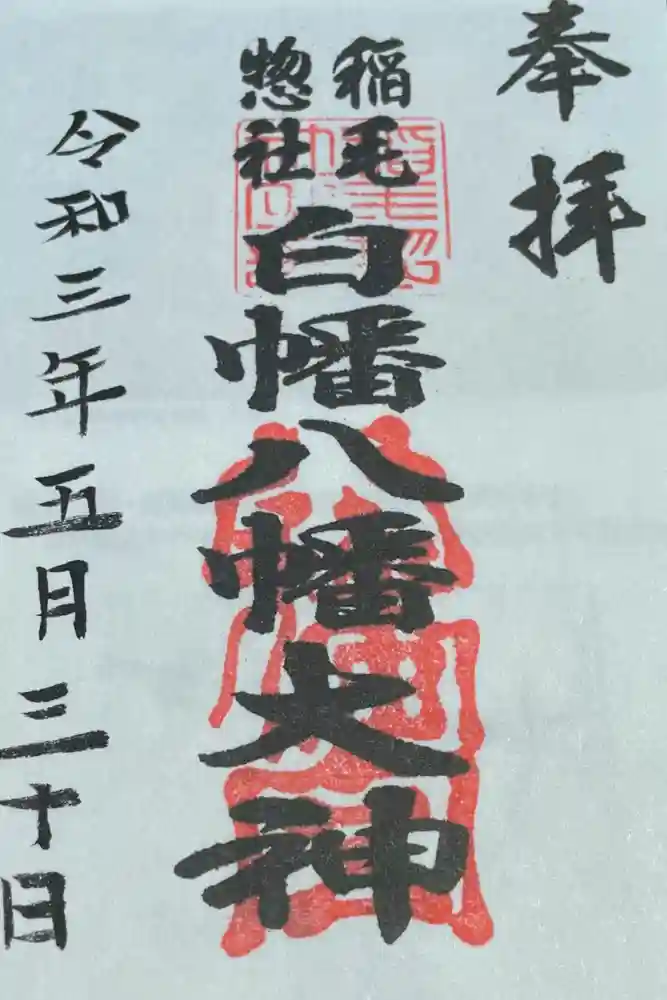 奉拝
稲毛
惣社
白幡八幡大神
令和三年五月三十日